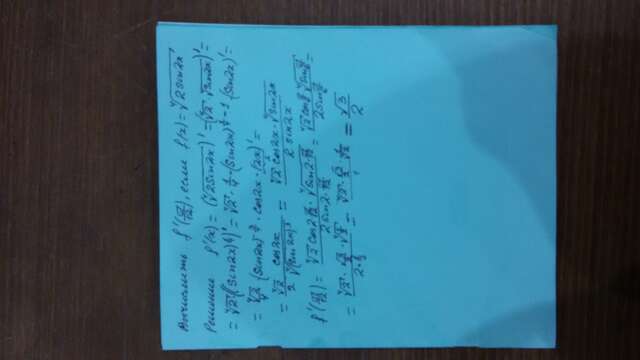 Вычислить f'(π/12), если f(x)=∜(2sin2x)
Решение f'(x)=(∜(2sin2x))'=(∜2·∜(sin2x))'=
=∜2((sin2x)^(1/4))'=∜2·1/4·(sin2x)^(1/4-1)·(sin2x)'=
=∜2/4·(sin2x)^(-3/4)·cos2x·(2x)'=
=∜2/2·cos2x/∜((sin2x)³)=∜2cos2x·∜(sin2x)/(2sin2x)
f'(π/12)=∜2cos2π/12·∜(sin2·π/12)/(2sin2·π/12)=∜2cosπ/6·∜(sinπ/6)/(2sinπ/6)=
=∜2·√3/2·∜(1/2)/(2·1/2)=∜2·√3/2·1/∜2/1=√3/2